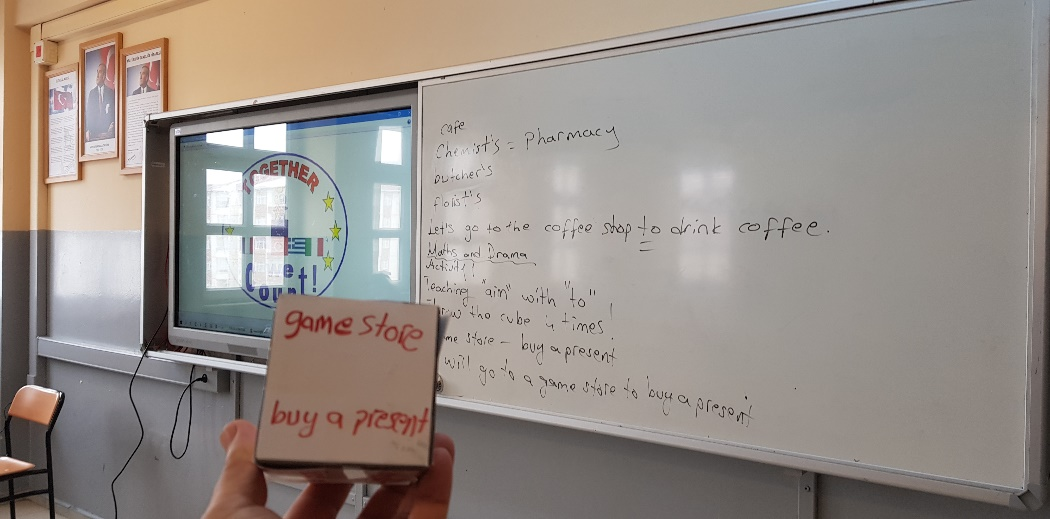 TOGETHER
We
Count!
cafe
Chemist's = Pharmacy
Butcher's
flolist's
Let's go to the coffee shop to drink coffee.
Maths and Drama
Activity!
Teaching "aim" with "to"
the cube 4 times!
store - buy a present
will go to a game store to buy a present
game store
buy a present